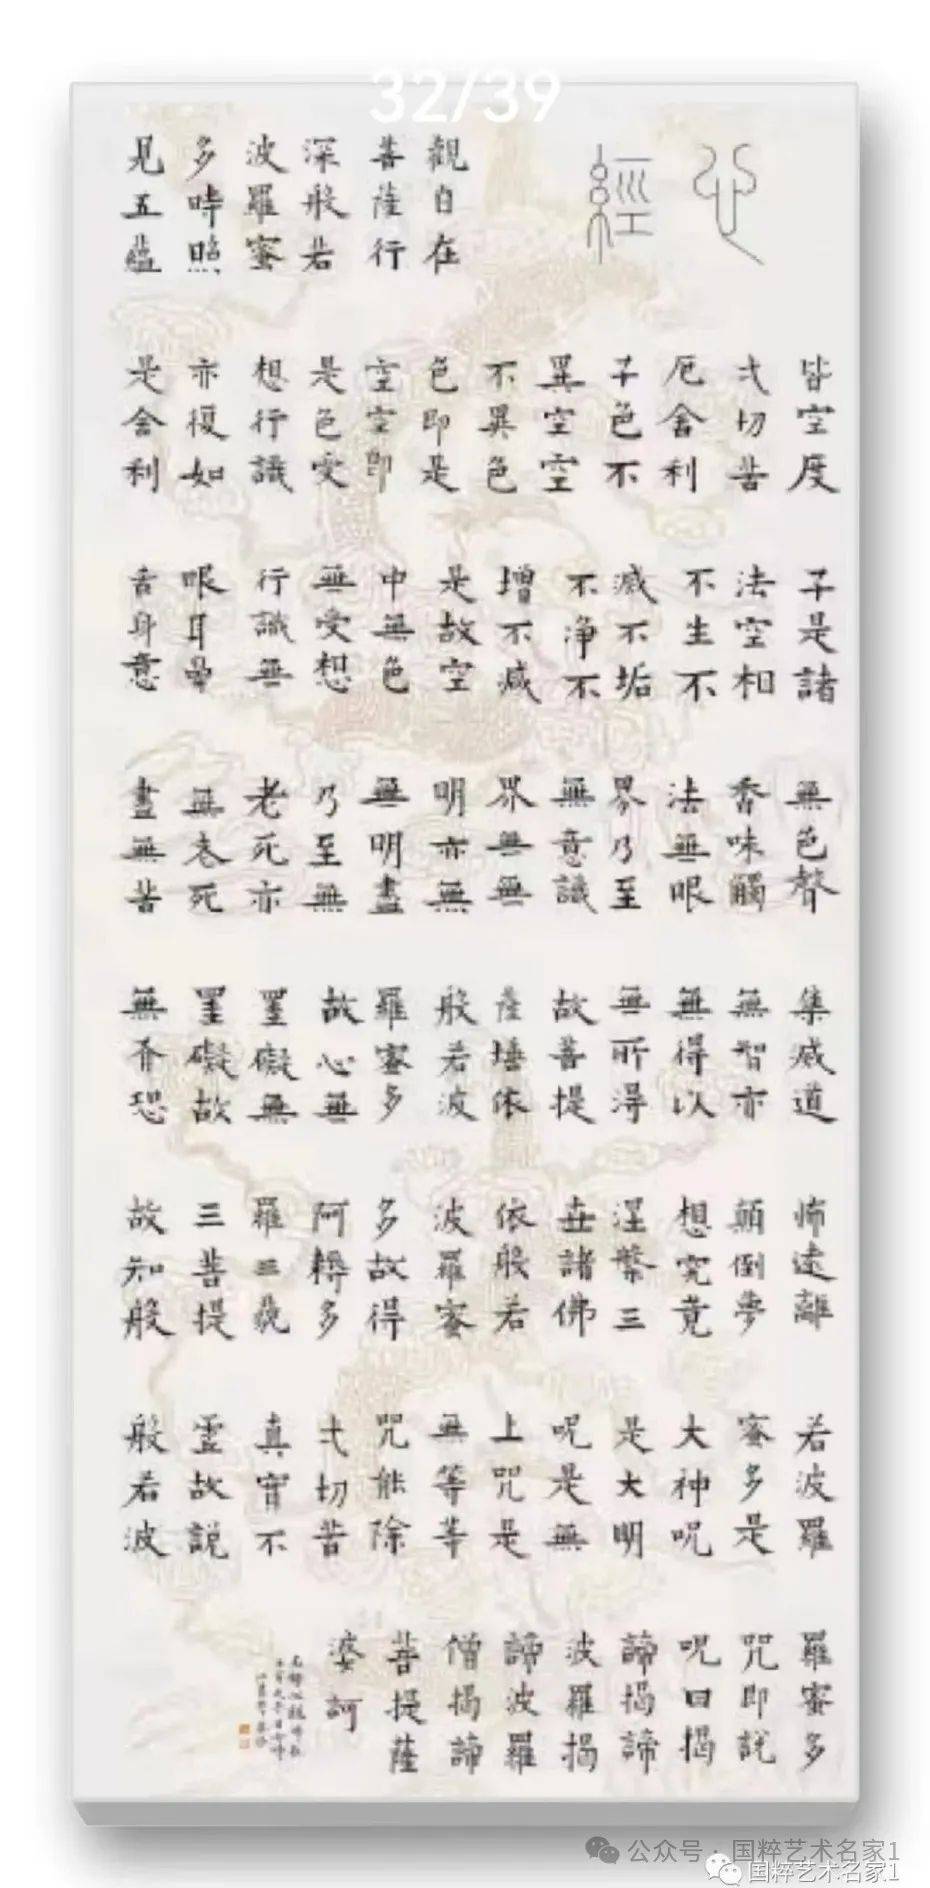 32/39
心經
觀自在
菩薩行
深般若
波羅蜜
多時照
見五蘊
皆空度
弌切苦
厄舍利
子色不
異空空
不異色
色即是
空空即
是色受
想行識
亦復如
是舍利
子是諸
法空相
不生不
滅不垢
不淨不
增不減
是故空
中無色
無受想
行識無
眼耳鼻
舌身意
無色聲
香味觸
法無眼
界乃至
無意識
界無無
明亦無
無明盡
乃至無
老死亦
無老死
盡無苦
集滅道
無智亦
無得以
無所得
故菩提
薩埵依
般若波
羅蜜多
故心無
罣礙無
罣礙故
無有恐
怖遠離
顛倒夢
想究竟
涅槃三
世諸佛
依般若
波羅蜜
多故得
阿耨多
羅三藐
三菩提
故知般
若波羅
蜜多是
大神呪
是大明
呪是無
上咒是
無等等
咒能除
弌切苦
真實不
虛故說
般若波
羅蜜多
咒即說
呪曰揭
諦揭諦
波羅揭
諦波羅
僧揭諦
菩提薩
婆訶
公众号·国粹艺术名家1
国粹艺术名家1